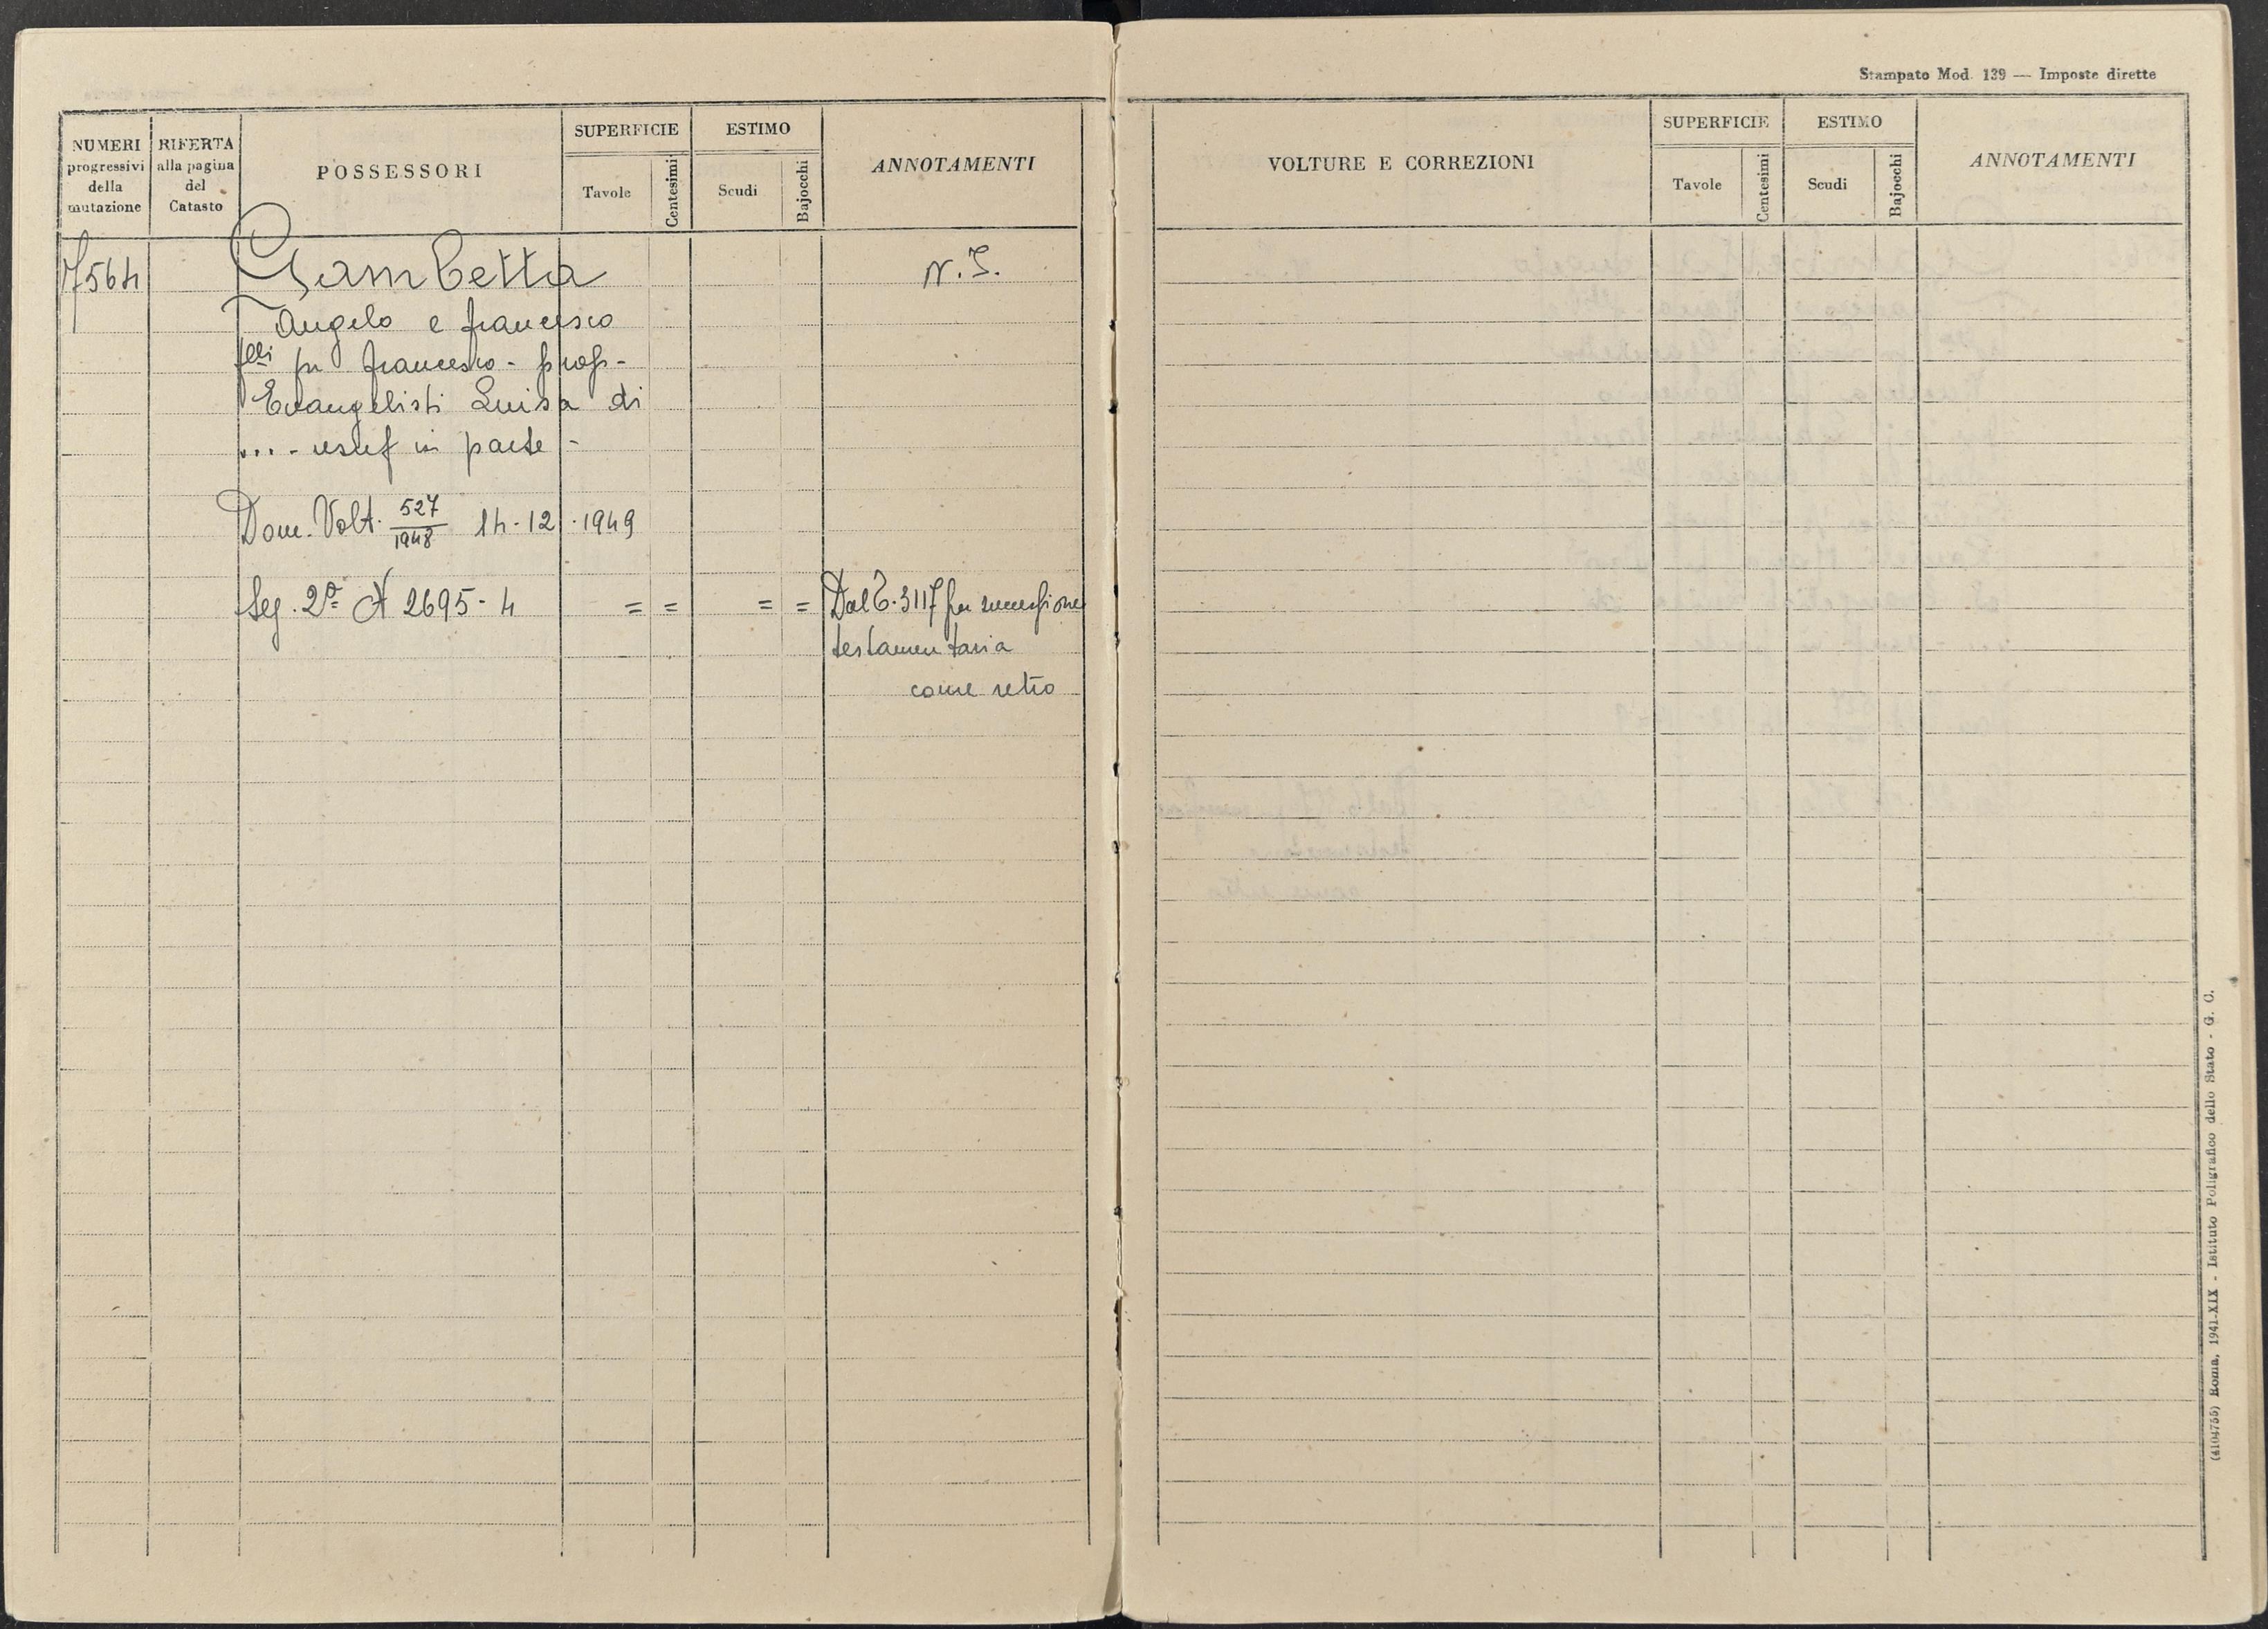 NUMERI
progressivi
della
mutazione
RIFERTA
alla pagina
del
Catasto
POSSESSORI
SUPERFICIE
Tavole
Centesimi
ESTIMO
Scudi
Bajocchi
ANNOTAMENTI
7564
Gambetta
N. I.
Angelo e francesco
flli fu francesco - prop -
Evangelisti Luisa di
... - usuf in parte -
Dom. Volt. 527/1948 14-12-1949
Seg. 2ª 2695-4 = = = = Dal 6.3117 per successione
testamentaria
come retro
Stampato Mod. 139 — Imposte dirette
VOLTURE E CORREZIONI
SUPERFICIE
Tavole
Centesimi
ESTIMO
Scudi
Bajocchi
ANNOTAMENTI
(4104755) Roma, 1941-XIX - Istituto Poligrafico dello Stato - G. C.